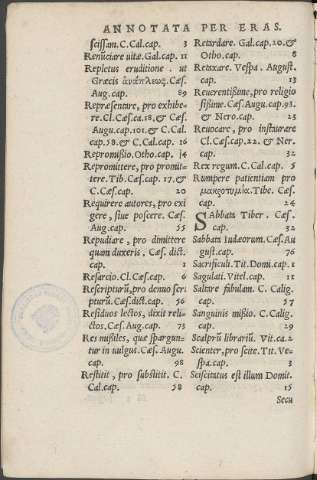 ANNOTATA PER ERAS.
scissam. C. Cal. cap. 3
Renũciare uitã. Gal. cap. 11
Repletus eruditione . ut
Græcis ἀνάπλεως. Cæs.
Aug. cap. 89
Repræsentare, pro exhibe-
re. Cl. Cæs. ca. 18. & Cæs.
Augu. cap. 101. & C. Cal.
cap. 58. & C. Cal. cap. 16
Repromißio. Otho. cap. 14
Repromittere, pro promit-
tere. Tib. Cæs. cap. 17. &
C. Cæs. cap. 20
Requirere autores, pro exi
gere, siue poscere. Cæs.
Aug. cap. 55
Repudiare , pro dimittere
quam duxeris. Cæs. dict.
cap.
Resarcio. Cl. Cæs. cap. 6
Rescripturũ, pro denuo scri
pturũ. Cæs. dict. cap. 56
Residuos lectos, dixit reli-
ctos. Cæs. Aug. cap. 73
Res mißiles, quæ spargun-
tur in uulgus. Cæs. Augu.
cap. 98
Restitit , pro substitit. C.
Cal. cap. 58
Retardare. Gal. cap. 20. &
Otho. cap. 8
Retaxare. Vespa. August.
cap. 13
Reuerentißime, pro religio
sißime. Cæs. Augu. cap. 93.
& Nero. cap. 23
Reuocare, pro instaurare
Cl. Cæs. cap. 22. & Ner.
cap. 32
Rex regum. C. Cal. cap. 5
Rumpere patientiam pro
μακροθυμία. Tibe. Cæs.
cap. 24
Sabbata Tiber . Cæs.
cap. 32
Sabbata Iudæorum. Cæs. Au
gust. cap. 76
Sacrificuli. Tit. Domit. cap. 1
Sagulati. Vitel. cap. 11
Saltare fabulam. C. Calig.
cap. 57
Sanguinis mißio. C. Calig.
cap. 29
Scalprũ librariũ. Vit. ca. 2
Scienter, pro scite. Tit. Ve-
spa. cap. 3
Sciscitatus est illum Domit.
cap. 15
Secu